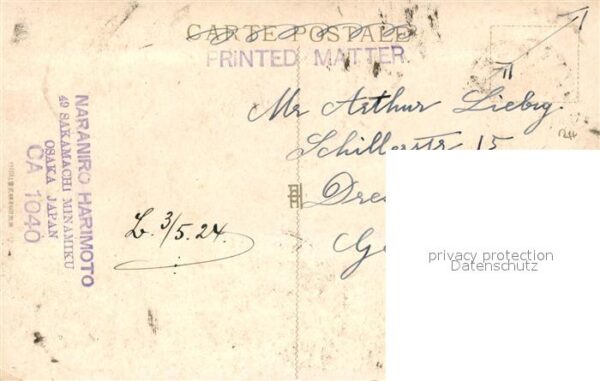 CARTE POSTALE
PRINTED MATTER.
Mr Arthur Liebig.
Schillerstr 15
Dre
Ge
NARANIRO HARIMOTO
49 SAKAMACHI MINAMIKU
OSAKA JAPAN
CA 1040
3/5.24.
privacy protection
Datenschutz